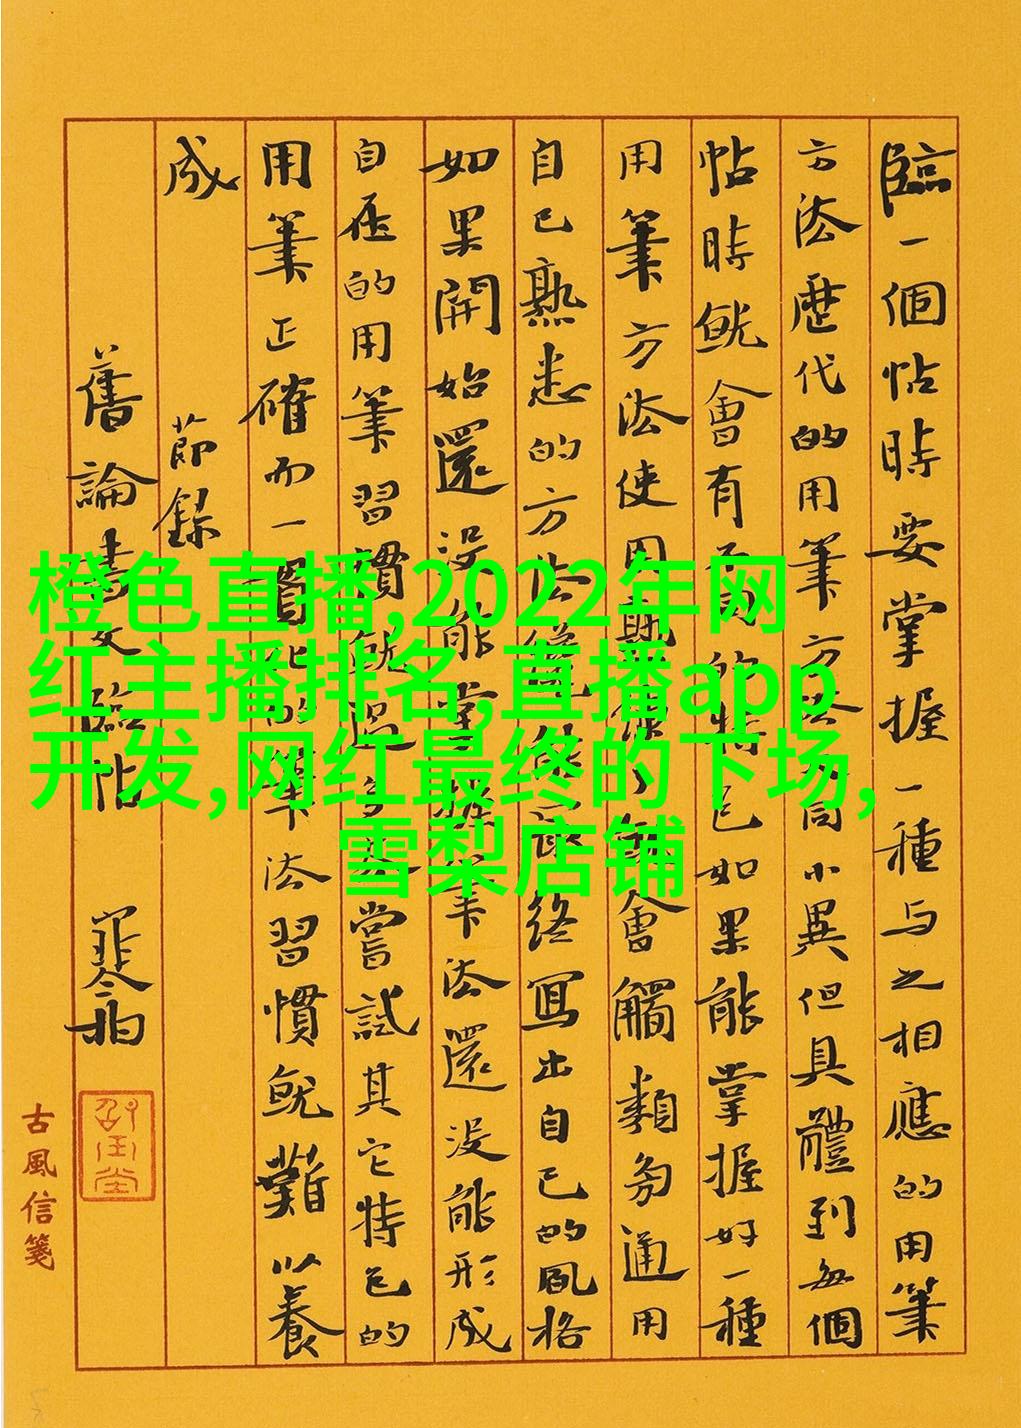 臨一個帖時要掌握一種与之相應的用筆
方法歷代的用筆方法大同小異但具體到每個
帖時就會有不同的特色如果能掌握好一種
用筆方法使用熟練了就會觸類旁通用
自己熟悉的方法能終寫出自己的風格
如果開始還没能掌握筆法還没能形成
自在的用筆習慣就過多去嘗試其它特色的
用筆正確而一的筆法習慣就難以養
成 節錄
舊論書文臨帖
古風信箋
橙色直播,2022年网
红主播排名,直播app
开发,网红最终的下场,
雪梨店铺